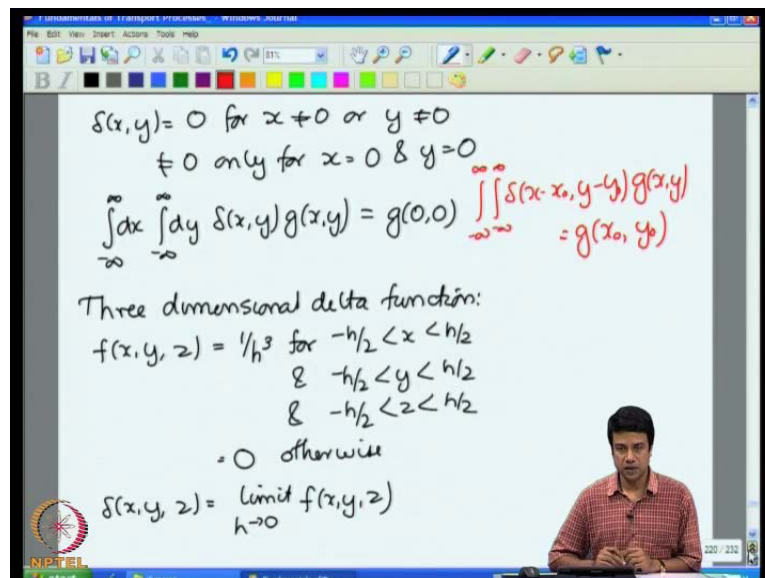 Fundamentals of Transport Processes_ - Windows Journal
File Edit View Insert Actions Tools Help
81%
B I
δ(x,y) = 0 for x ≠ 0 or y ≠ 0
≠ 0 only for x = 0 & y = 0
∫_{-∞}^{∞} dx ∫_{-∞}^{∞} dy δ(x,y) g(x,y) = g(0,0)
∫_{-∞}^{∞} ∫_{-∞}^{∞} δ(x-x₀, y-y₀) g(x,y)
= g(x₀, y₀)
Three dimensional delta function:
f(x,y,z) = 1/h³ for -h/2 < x < h/2
& -h/2 < y < h/2
& -h/2 < z < h/2
= 0 otherwise
δ(x,y,z) = limit f(x,y,z)
h→0
220 / 232
NPTEL